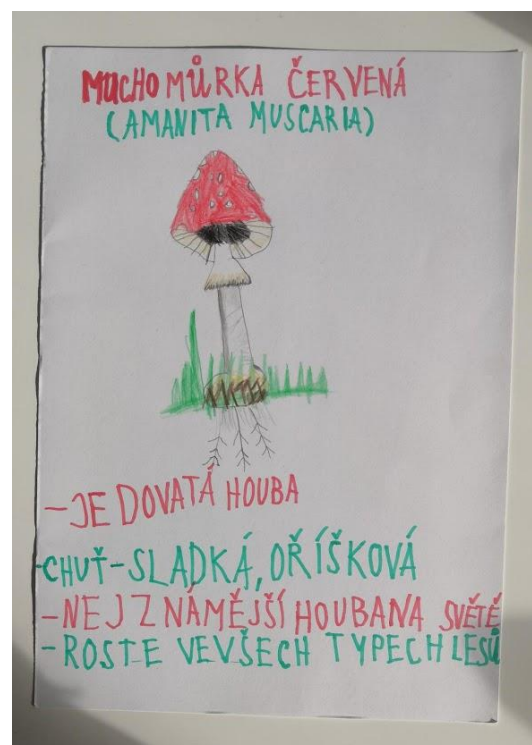 MUCHOMŮRKA ČERVENÁ
(AMANITA MUSCARIA)
-JEDOVATÁ HOUBA
-CHUŤ-SLADKÁ, OŘÍŠKOVÁ
-NEJZNÁMĚJŠÍ HOUBA NA SVĚTĚ
-ROSTE VE VŠECH TYPECH LESŮ